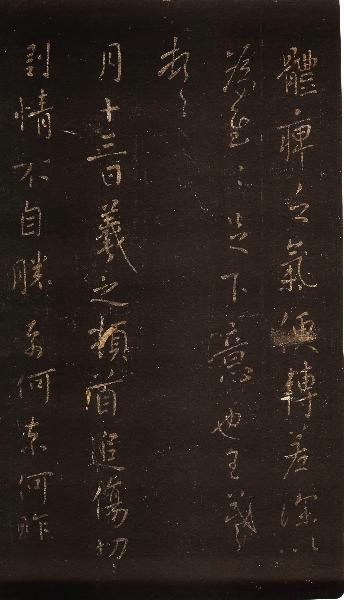 體痺之氣便轉差深以
為慰足下意也王羲
頓首
月十三日羲之頓首追傷切
割情不自勝奈何奈何昨